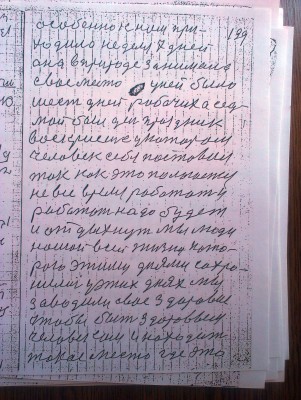 особенно к нам при- 139
ходило неделя х дней
она в природе занимала
свое место у ней было
шесть дней рабочих а сед-
мой был ден праздник
воскрисение у котором
человек себя поставил
так как это положено
не все время работать
работат надо будет
и отдыхнуть мы люди
нашой всей жизни кото-
рого этими днями сохра-
мы
заводили свое здоровие
чтобы быт здоровым
человеком и находит
такое место где эта